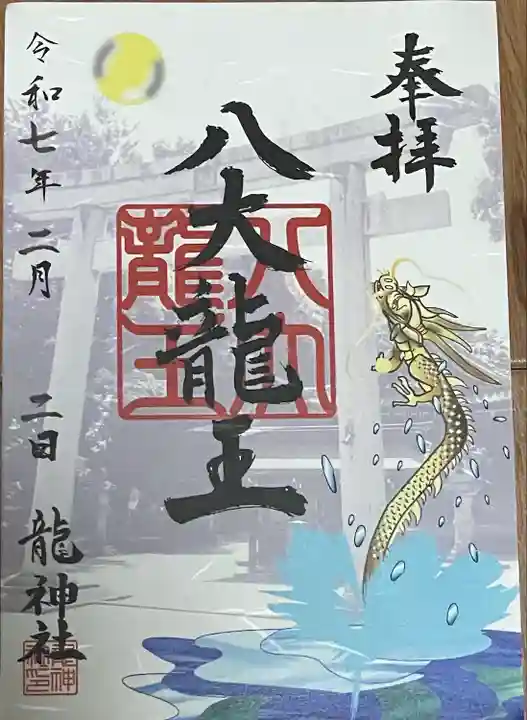 奉拝
八大龍王
八大龍王
令和七年 二月 二日 龍神社